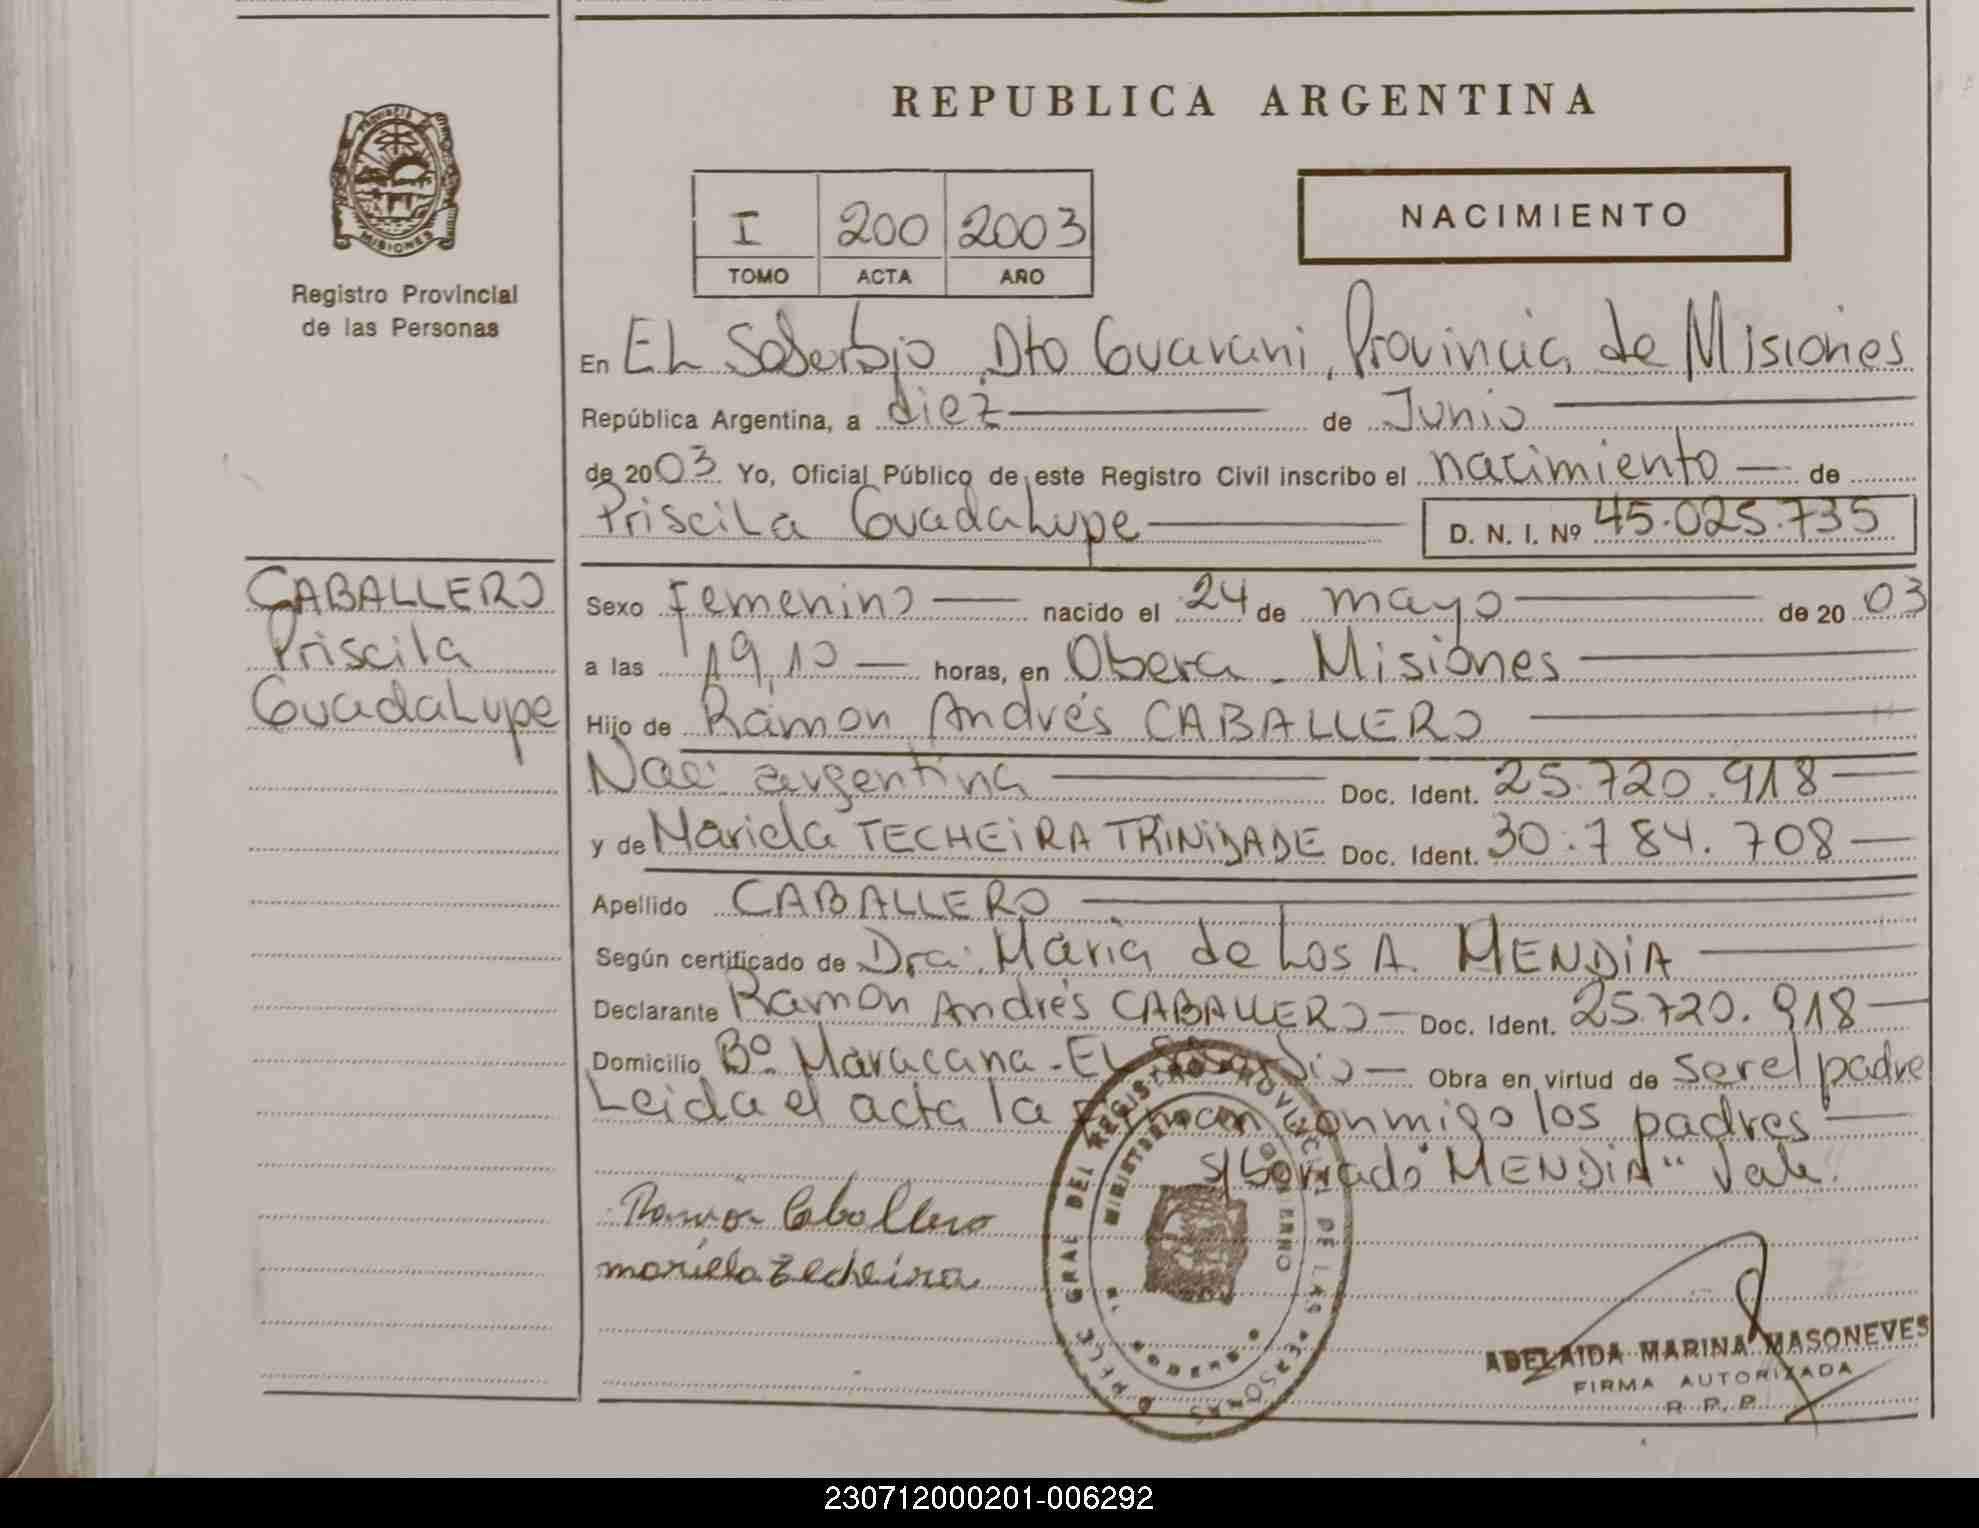 REPUBLICA ARGENTINA
PROVINCIA DE
MISIONES
Registro Provincial
de las Personas
I 200 2003
TOMO ACTA AÑO
NACIMIENTO
En EL Soberbio, Dto Guarani, Provincia de Misiones
República Argentina, a diez de Junio
de 2003 Yo, Oficial Público de este Registro Civil inscribo el nacimiento de
Priscila Guadalupe D. N. I. Nº 45.025.735
CABALLERO
Priscila
Guadalupe
Sexo femenino nacido el 24 de mayo de 2003
a las 19,10 horas, en Obera - Misiones
Hijo de Ramon Andrés CABALLERO
Nac. argentina Doc. Ident. 25.720.918
y de Mariela TECHEIRA TRINIDADE Doc. Ident. 30.784.708
Apellido CABALLERO
Según certificado de Dra. Maria de Los A. MENDIA
Declarante Ramon Andrés CABALLERO Doc. Ident. 25.720.918
Domicilio Bº. Maracana - EL Soberbio Obra en virtud de ser el padre
Leida el acta la firman conmigo los padres
S/borrado "MENDIA" Vale.
Ramon Caballero
mariela techeira
GRAL DEL REGISTRO PROVINCIAL DE LAS PERSONAS
MINISTERIO GOBIERNO
ADELAIDA MARINA MASONEVES
FIRMA AUTORIZADA
R. P. P.
230712000201-006292